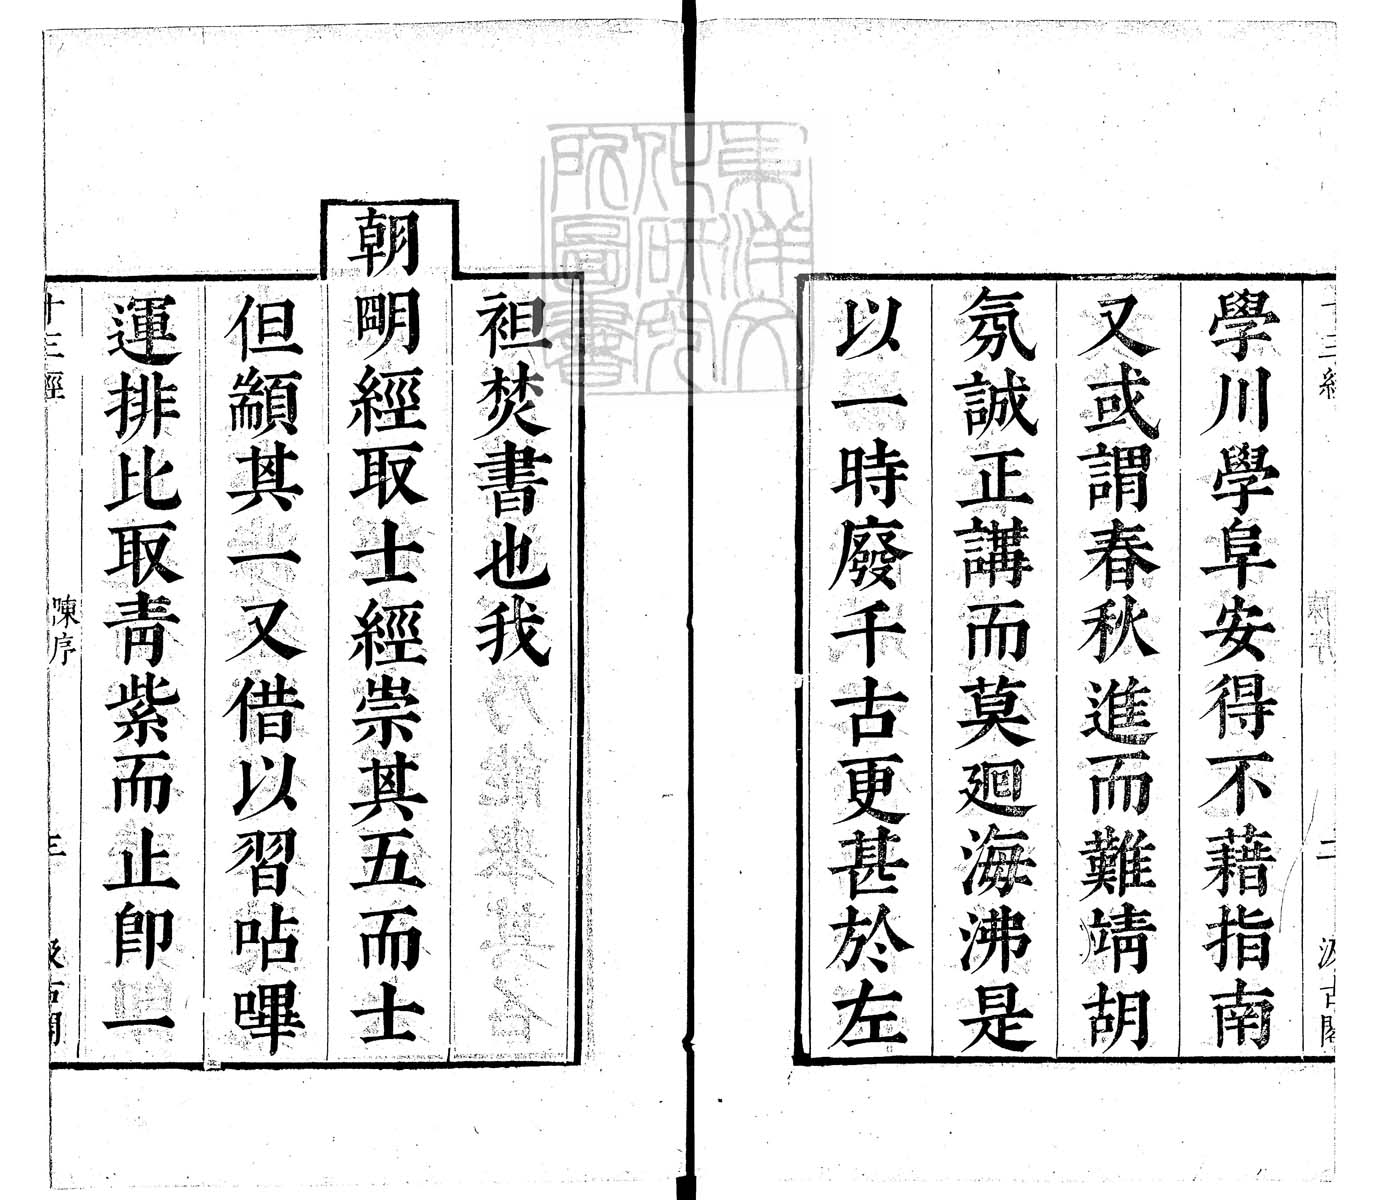 十三經
二
汲古閣
學川學阜安得不藉指南
又或謂春秋進而難靖胡
氛誠正講而莫廻海沸是
以一時廢千古更甚於左
袒焚書也我
朝明經取士經崇其五而士
但顓其一又借以習呫嗶
運排比取靑紫而止卽一
十三經
陳序
三
汲古閣
東洋文
化研究
所圖書